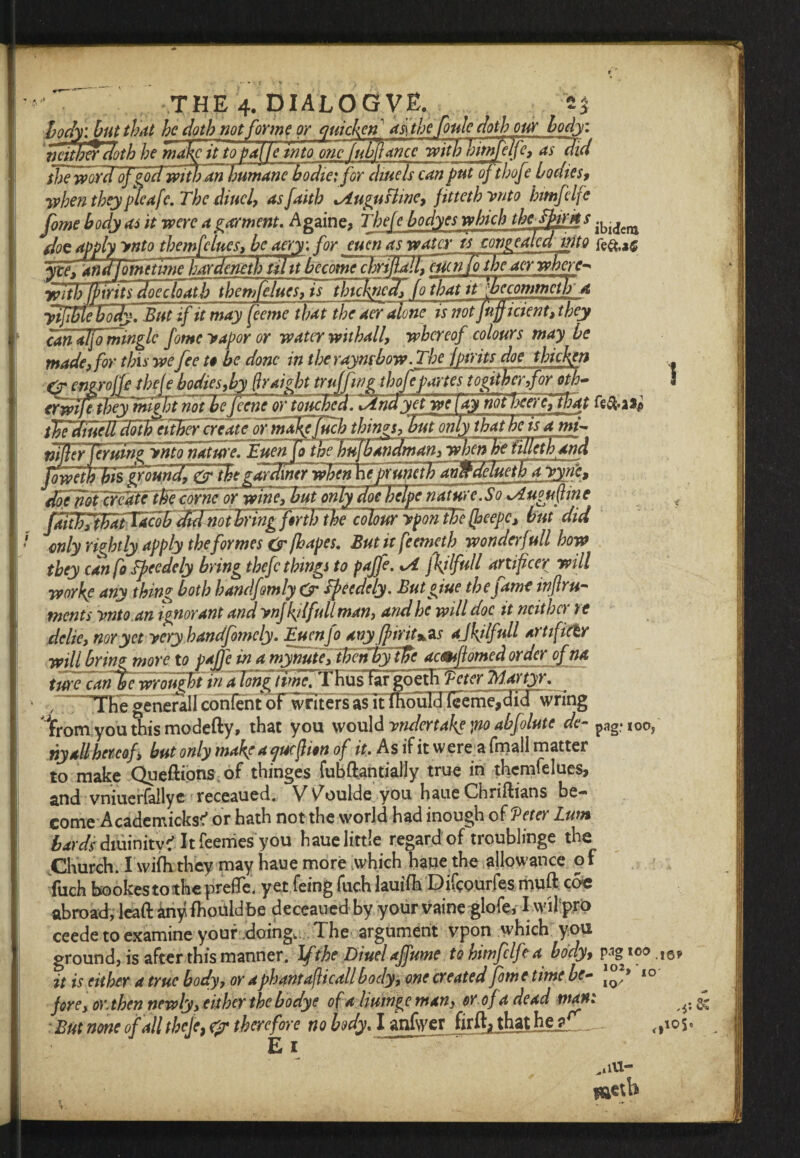 THE 4. DIALOGVE. 23
body: but that he doth not forme or quicken as the soule doth our body:
neither doth he make it to passe into one substance with himselfe, as did
the word of god with an humane bodie: for diuels can put of those bodies,
when they please. The diuel, as saith Augustine, fitteth vnto himselfe
some body as it were a garment. Againe, These bodyes which the Spirits
doe apply vnto themselues, be aery: for euen as water is congealed into
yce, and sometime hardeneth til it become christall, euen so the aer where-
with spirits doe cloath themselues, is thickned, so that it becommeth a
visible body. But if it may seeme that the aer alone is not sufficient, they
can also mingle some vapor or water withall, whereof colours may be
made, for this we see to be done in the raynebow. The spirits doe thicken
& engrosse these bodies, by straight trussing those partes togither, for oth-
erwise they might not be seene or touched. And yet we say not heere, that
the diuell doth either create or make such things, but only that he is a mi-
nister seruing vnto nature. Euen so the husbandman, when he tilleth and
soweth his ground, & the gardiner when he pruneth and delueth a vyne,
doe not create the corne or wine, but only doe helpe nature. So Augustine
saith, that Iacob did not bring forth the colour vpon the sheepe, but did
only rightly apply the formes & shapes. But it seemeth wonderfull how
they can so speedely bring these things to passe. A skilfull artificer will
worke any thing both handsomly & speedely. But giue the same instru-
ments vnto an ignorant and vnskilfull man, and he will doe it neither re
delie, nor yet very handsomely. Euen so any spirit, as a skilfull artificer
will bring more to passe in a mynute, then by the accustomed order of na
ture can be wrought in a long time. Thus far goeth Peter Martyr.
The generall consent of writers as it should seeme, did wring
from you this modesty, that you would vndertake no absolute de-
ny all hereof, but only make a question of it. As if it were a small matter
to make Questions of thinges substantially true in themselues,
and vniuersallye receaued. VVoulde you haue Christians be-
come Academicks? or hath not the world had inough of Peter Lum
bards diuinity? It seemes you haue little regard of troublinge the
Church. I wish they may haue more which haue the allowance of
such bookes to the presse. yet seing such lauish Discourses must coe
abroad, least any should be deceaued by your vaine glose, I wil pro
ceede to examine your doing. The argument vpon which you
ground, is after this manner. If the Diuel assume to himselfe a body,
it is either a true body, or a phantasticall body, one created some time be-
fore, or then newly, either the bodye of a liuinge man, or of a dead man:
But none of all these, & therefore no body. I answer first, that he
E 1
ibidem
sect.26
sect.28
pag. 100,
pag 100
meth